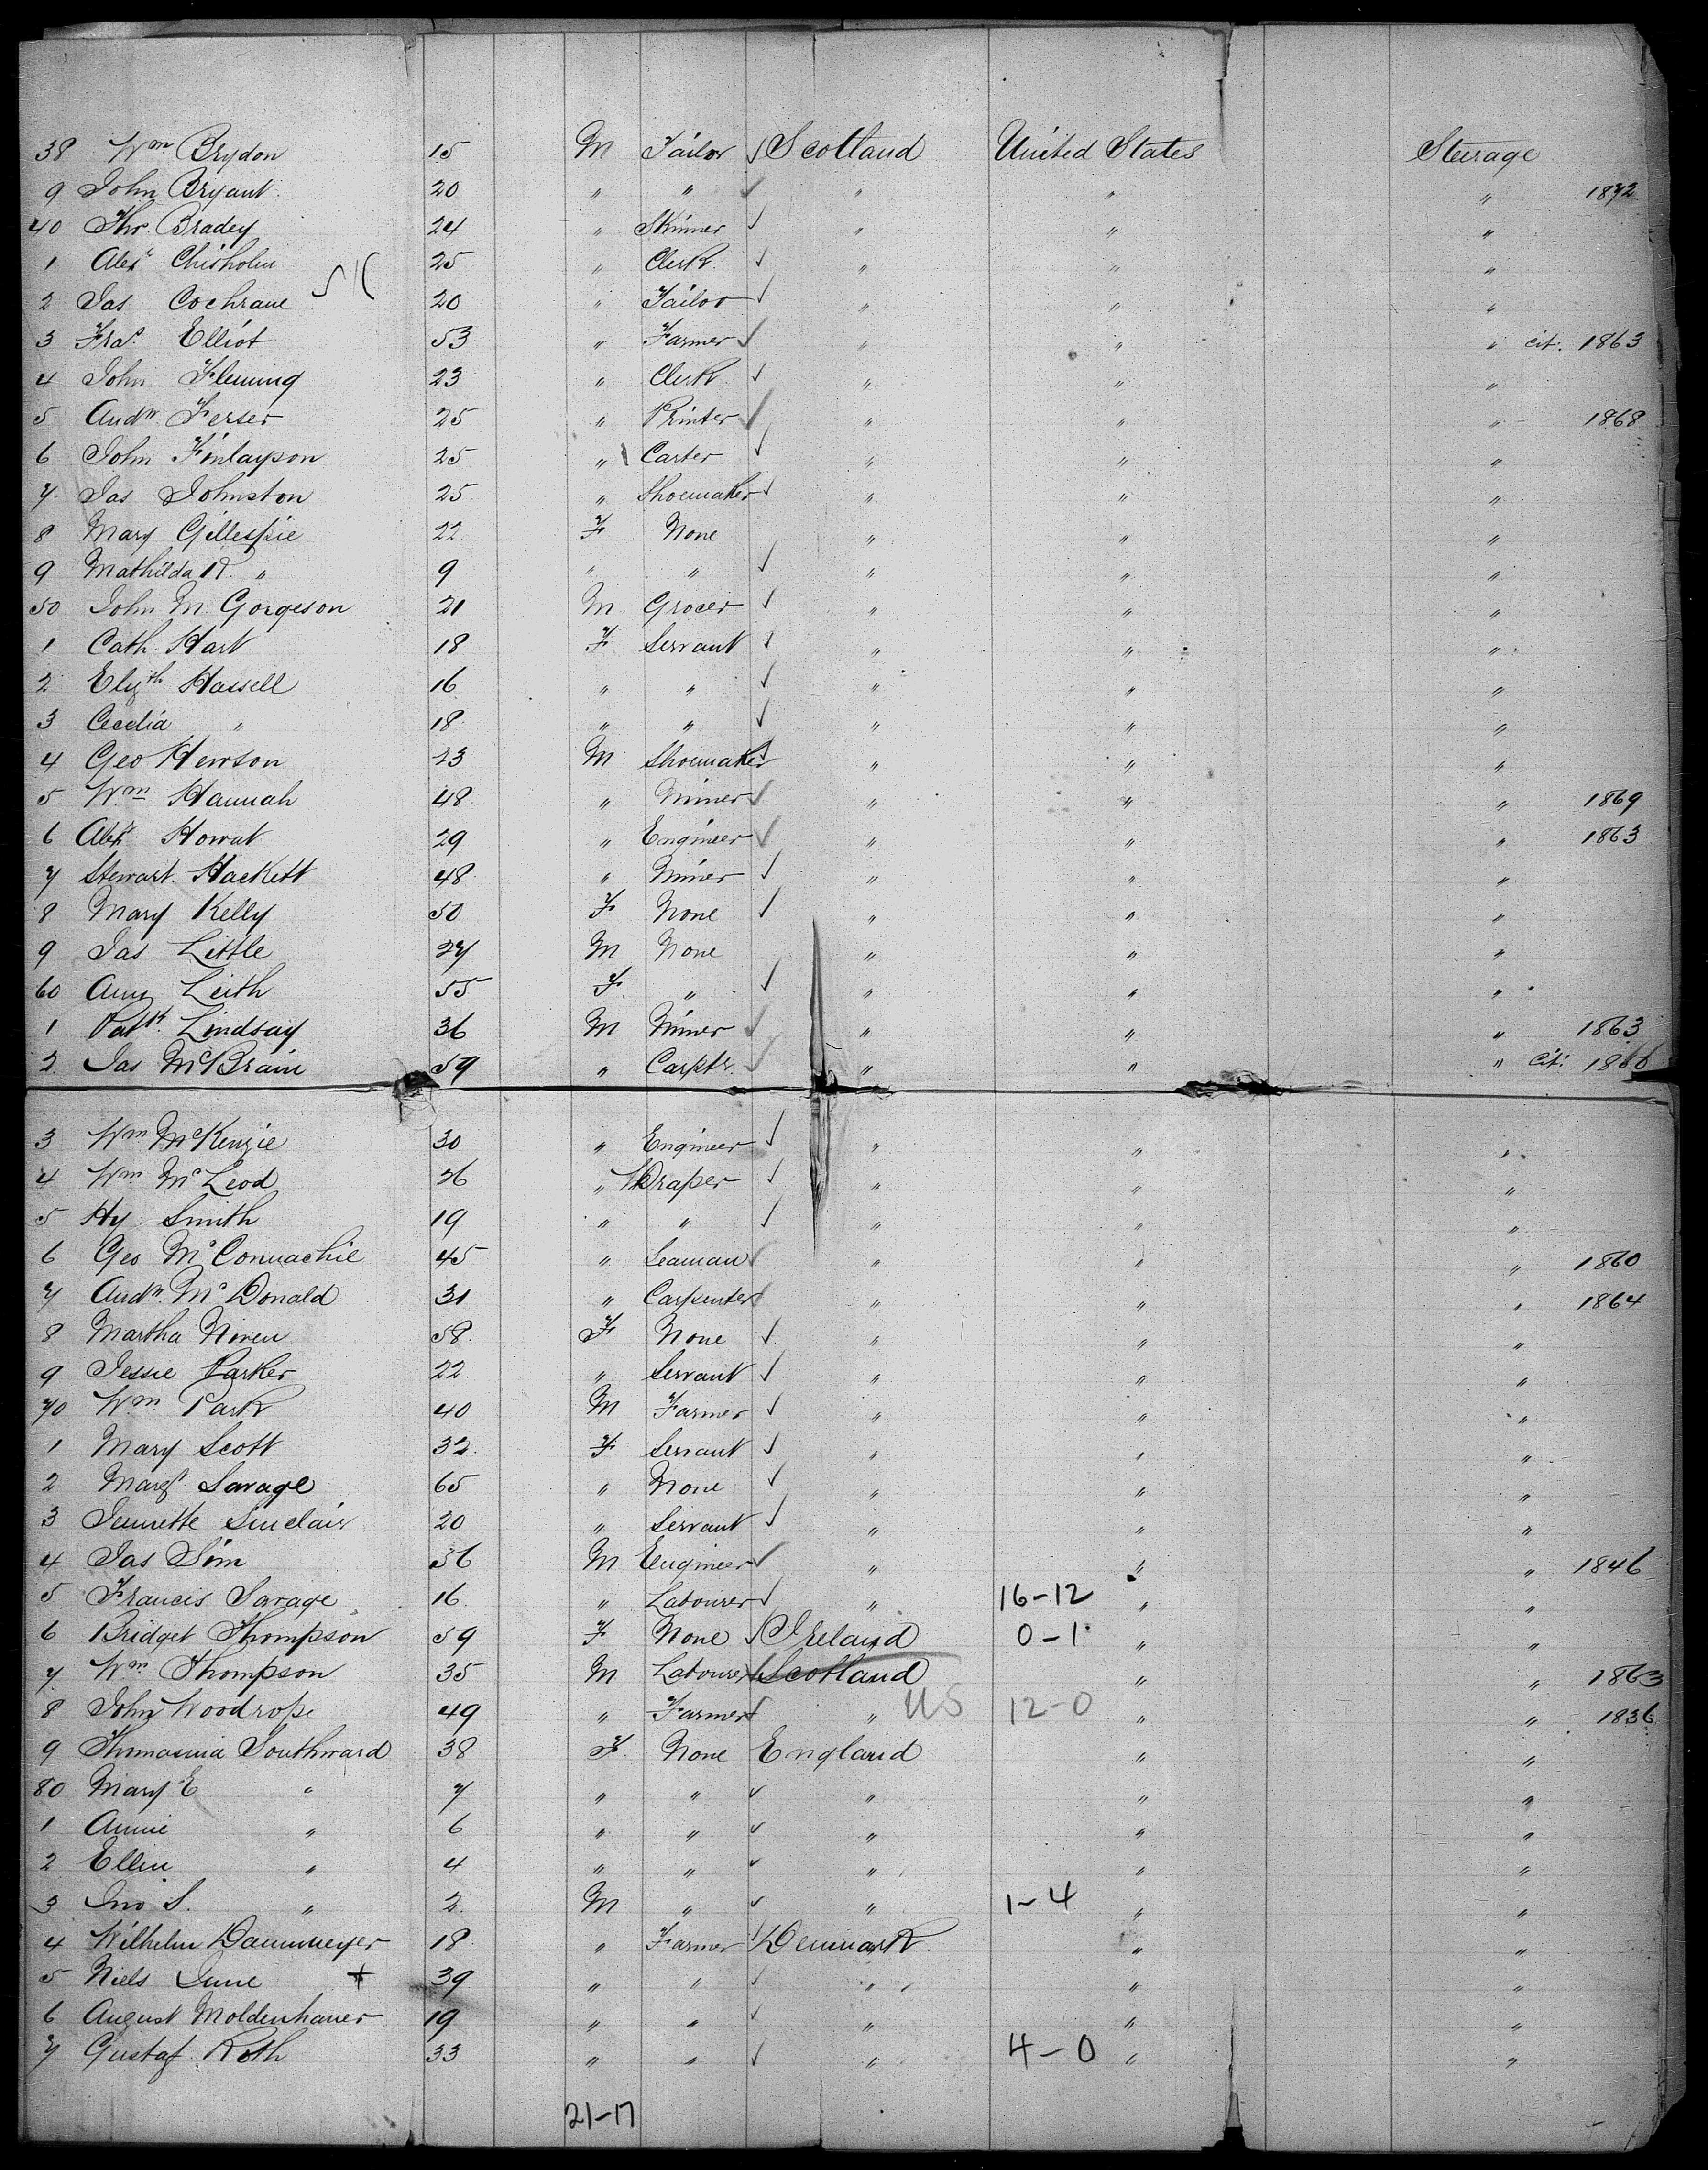 38 Wm Brydon 15 M Tailor Scotland United States Steerage
9 John Bryant 20 " " " " " 1872
40 Thos. Bradey 24 " Skinner " " "
1 Alexr Chisholm 25 " Clerk " " "
2 Jas Cochrane 20 " Tailor " " "
3 Fras. Elliot 53 " Farmer " " " cit. 1863
4 John Fleming 23 " Clerk " " "
5 Andw. Ferser 25 " Printer " " " 1868
6 John Finlayson 25 " Carter " " "
7 Jas Johnston 25 " Shoemaker " " "
8 Mary Gillespie 22 F None " " "
9 Mathilda R. " 9 " " " " "
50 John M. Gorgeson 21 M Grocer " " "
1 Cath. Hart 18 F Servant " " "
2 Elizth Hassell 16 " " " " "
3 Cecelia " 18 " " " " "
4 Geo Hewson 23 M Shoemaker " " "
5 Wm Hannah 48 " Miner " " " 1869
6 Alexr Howat 29 " Engineer " " " 1863
7 Stewart Hackett 48 " Miner " " "
8 Mary Kelly 50 F None " " "
9 Jas Little 27 M None " " "
60 Amy Leith 55 F " " " "
1 Patk. Lindsay 36 M Miner " " " 1863
2 Jas McBrain 59 " Carptr. " " " Cit. 1866
3 Wm McKenzie 30 " Engineer " " "
4 Wm McLeod 26 " Draper " " "
5 Hy Smith 19 " " " " "
6 Geo McConnachie 45 " Seaman " " " 1860
7 Andw. McDonald 31 " Carpenter " " " 1864
8 Martha Niven 58 F None " " "
9 Jessie Parker 22 " Servant " " "
70 Wm. Park 40 M Farmer " " "
1 Mary Scott 32 F Servant " " "
2 Margt. Savage 65 " None " " "
3 Jennette Sinclair 20 " Servant " " "
4 Jas Sim 36 M Engineer " " " 1846
5 Francis Savage 16 " Labourer " 16-12 " "
6 Bridget Thompson 59 F None Ireland 0-1 " "
7 Wm. Thompson 35 M Labourer Scotland " " 1863
8 John Woodrope 49 " Farmer " US 12-0 " " 1836
9 Thomasina Southward 38 F. None England " "
80 Mary E " 7 " " " " "
1 Annie " 6 " " " " "
2 Ellen " 4 " " " " "
3 Jno S. " 2 M " " 1-4 " "
4 Wilhelm Dammeyer 18 " Farmer Denmark " "
5 Niels June + 39 " " " " "
6 August Moldenhauer 19 " " " " "
7 Gustaf Roth 33 " " " 4-0 " "
21-17